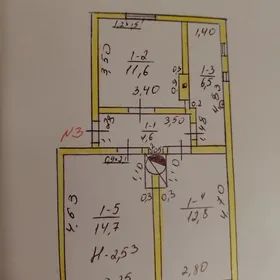 1,40
1-2
11,6
3,50
3,40
1-3
6,5
4,83
0,2
N3
1-1
4,6
3,50
1,48
1,10
1,10
0,3
0,3
4,63
1-5
14,7
H-2,53
1-4
12,8
4,70
2,80